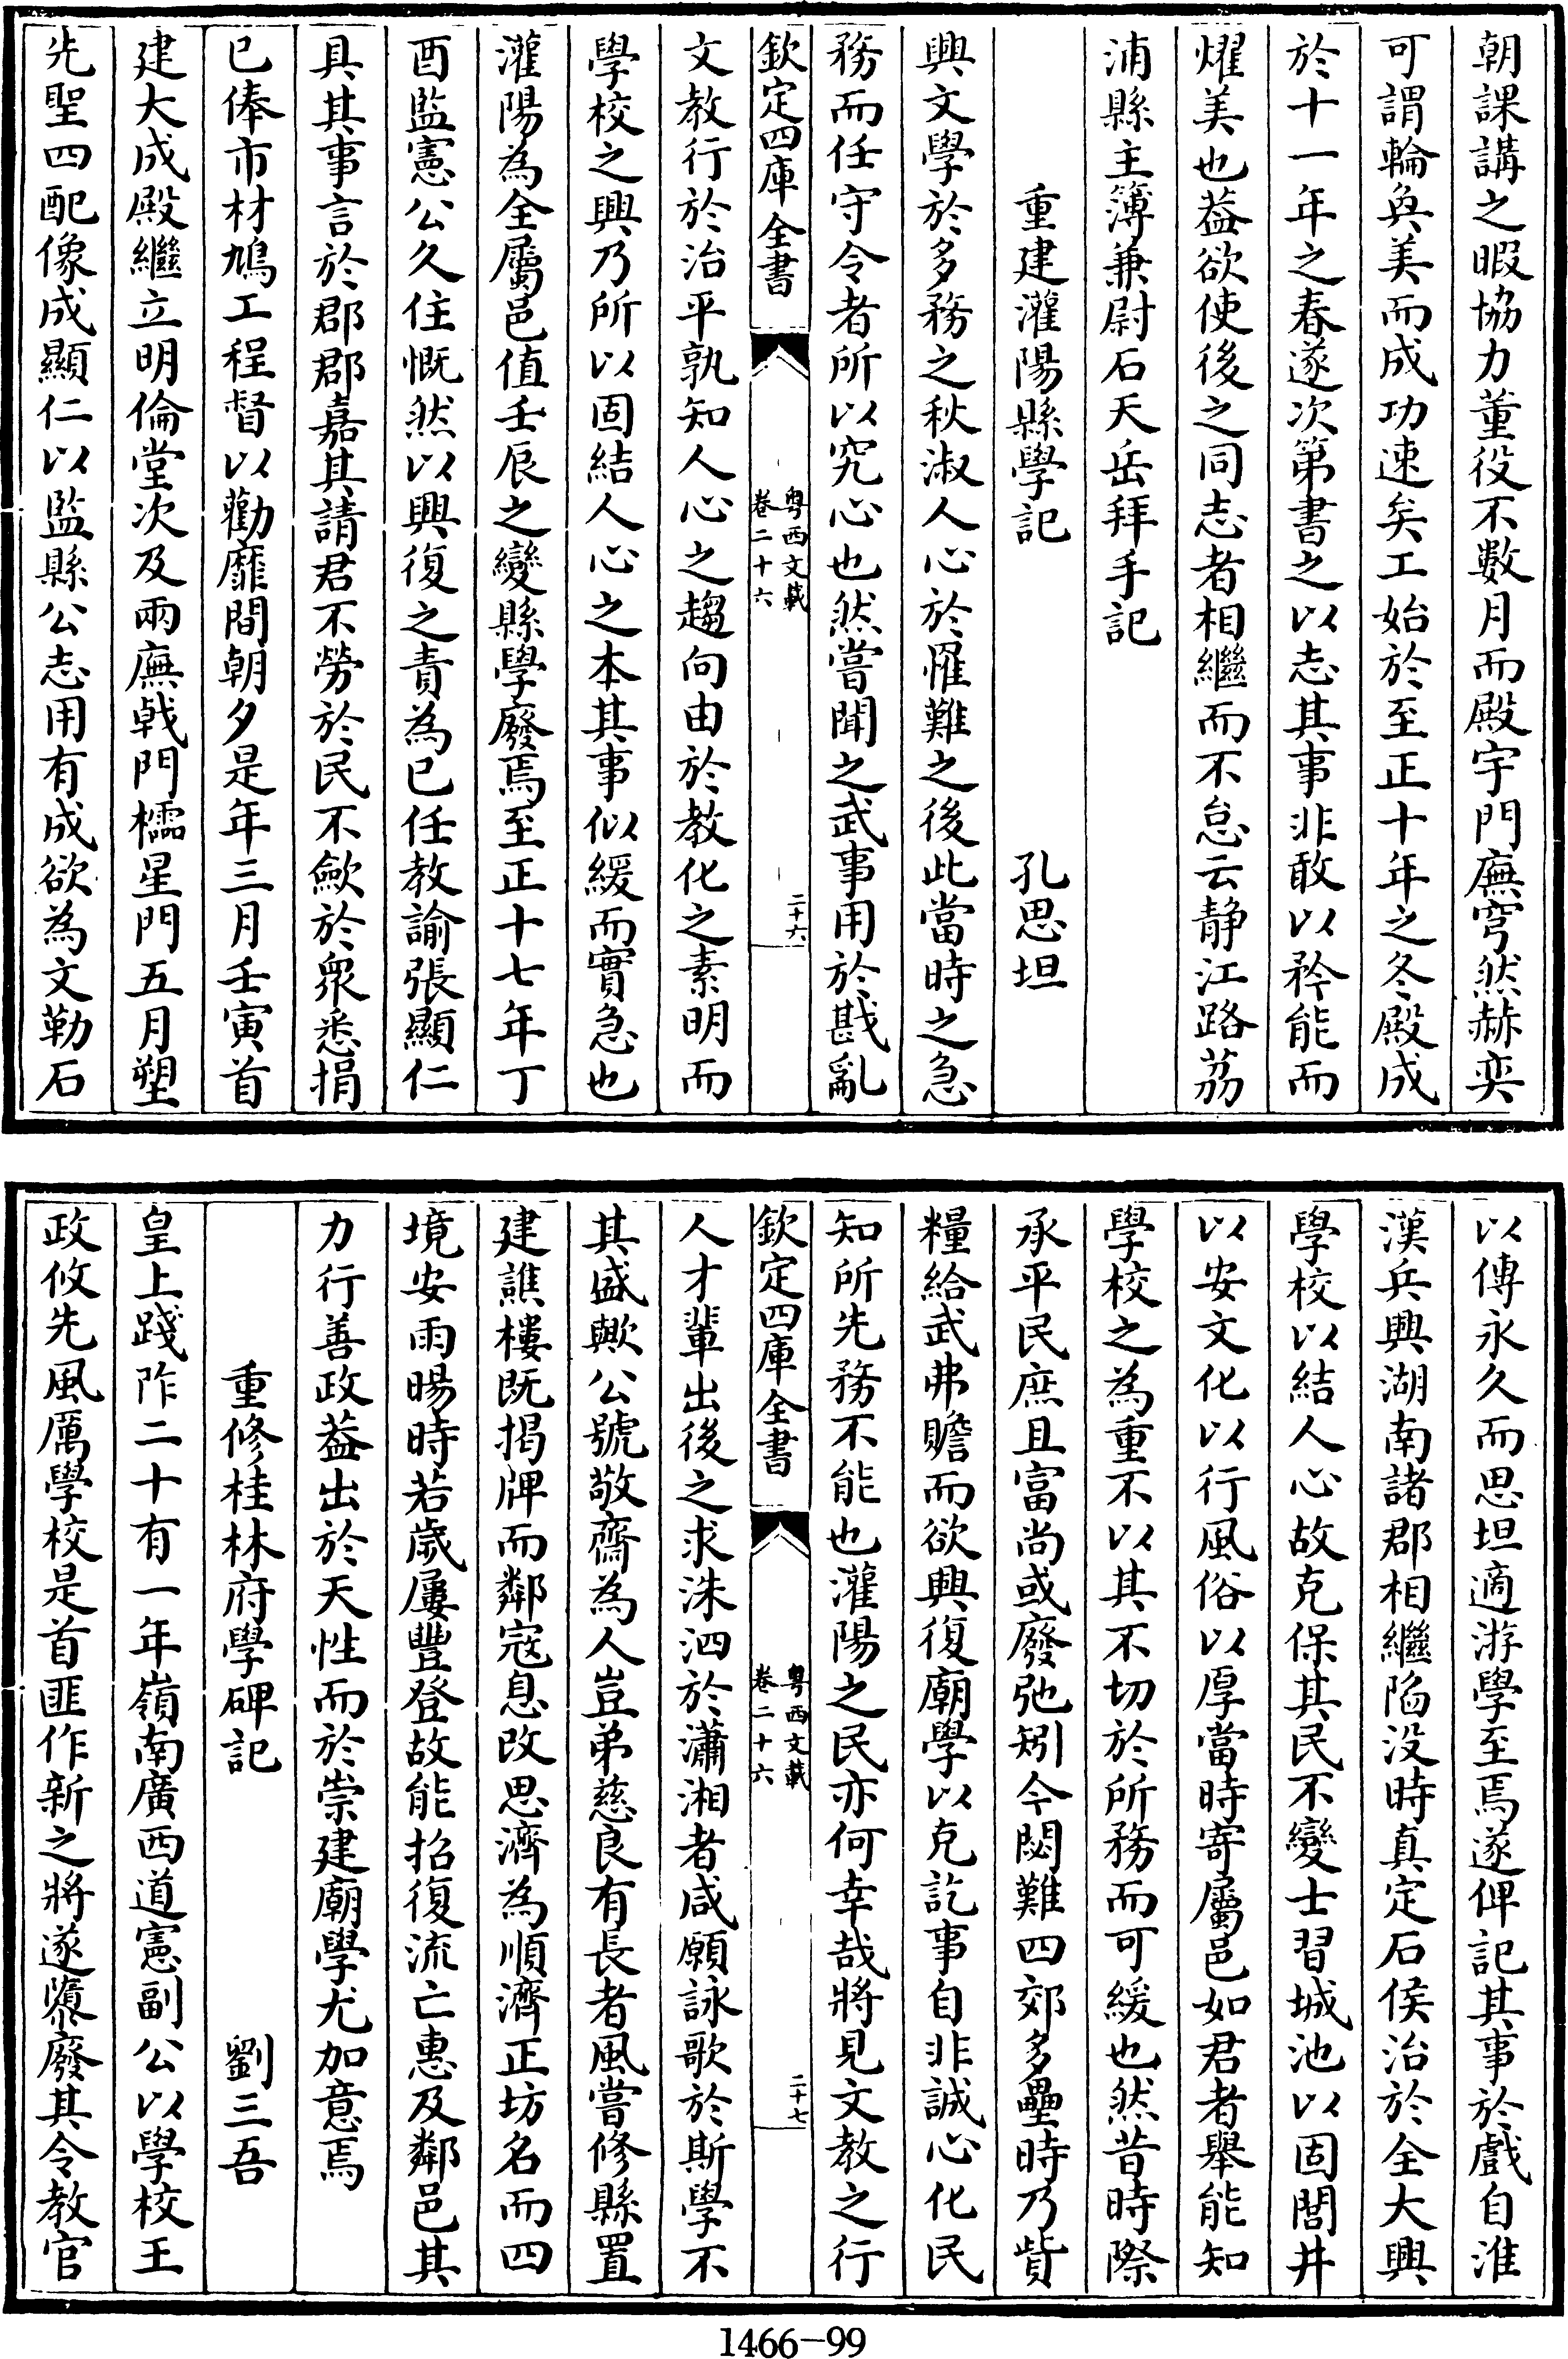 朝課講之暇協力董役不數月而殿宇門廡穹然赫奕
可謂輪奐美而成功速矣工始於至正十年之冬殿成
於十一年之春遂次第書之以志其事非敢以矜能而
燿美也葢欲使後之同志者相繼而不怠云静江路荔
浦縣主簿兼尉石天岳拜手記
重建灌陽縣學記 孔思坦
興文學於多務之秋淑人心於罹難之後此當時之急
務而任守令者所以究心也然嘗聞之武事用於戡亂
欽定四庫全書 粤西文載 卷二十六 二十六
文教行於治平孰知人心之趨向由於教化之素明而
學校之興乃所以固結人心之本其事似緩而實急也
灌陽為全屬邑值壬辰之變縣學廢焉至正十七年丁
酉監憲公久住慨然以興復之責為已任教諭張顯仁
具其事言於郡郡嘉其請君不勞於民不歛於衆悉捐
已俸市材鳩工程督以勸靡間朝夕是年三月壬寅首
建大成殿繼立明倫堂次及兩廡戟門櫺星門五月塑
先聖四配像成顯仁以監縣公志用有成欲為文勒石
以傳永久而思坦適游學至焉遂俾記其事於戲自淮
漢兵興湖南諸郡相繼陷没時真定石侯治於全大興
學校以結人心故克保其民不變士習城池以固閭井
以安文化以行風俗以厚當時寄屬邑如君者舉能知
學校之為重不以其不切於所務而可緩也然昔時際
承平民庶且富尚或廢弛矧今閎難四郊多壘時乃貲
糧給武弗贍而欲興復廟學以克訖事自非誠心化民
知所先務不能也灌陽之民亦何幸哉將見文教之行
欽定四庫全書 粤西文載 卷二十六 二十七
人才輩出後之求洙泗於瀟湘者咸願詠歌於斯學不
其盛歟公號敬齋為人豈弟慈良有長者風嘗修縣置
建譙樓既揭牌而鄰寇息改思濟為順濟正坊名而四
境安雨暘時若歲屢豐登故能招復流亡惠及鄰邑其
力行善政葢出於天性而於崇建廟學尤加意焉
重修桂林府學碑記 劉三吾
皇上踐阼二十有一年嶺南廣西道憲副公以學校王
政攸先風厲學校是首匪作新之將遂隳廢其令教官
1466-99